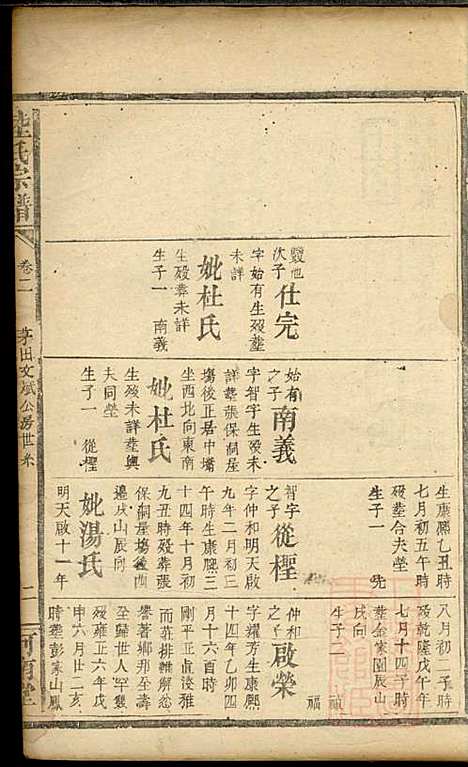 鑒也
次子
仕完
字始有生殁塟
未詳
妣杜氏
生殁葬未詳
生子一　南義
始有
之子
南義
字智宇生殁未
詳塟張保嗣屋
塲後正居中塚
坐西北向東南
妣杜氏
生殁未詳塟與
夫同塋
生子一　從樫
生康熙乙丑時
七月初五午時
殁塟合夫塋
生子一　先
智字
之子
從樫
字仲和明天啟
九年二月初三
午時生康熙三
十四年十月初
九丑時殁葬張
保嗣屋塲後
邊戌山辰向
妣湯氏
明天啟十一年
八月初二子時
殁乾隆戊午年
七月十四子時
塟金家園辰山
戌向
生子二　禎
福
仲和
之子
啟榮
字耀芳生康熙
十四年乙卯四
月十六酉時
剛平正貞淩雅
而葬排難解忿
譽著鄉邦至壽
全歸世人罕覯
殁雍正六年戊
申六月廿二亥
時塟彭家山鳳
陸氏宗譜
卷二
茅田文斌公房世系
二
河南堂